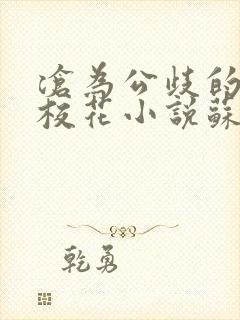 滄為公歧的
校花小說蘇
乾勇